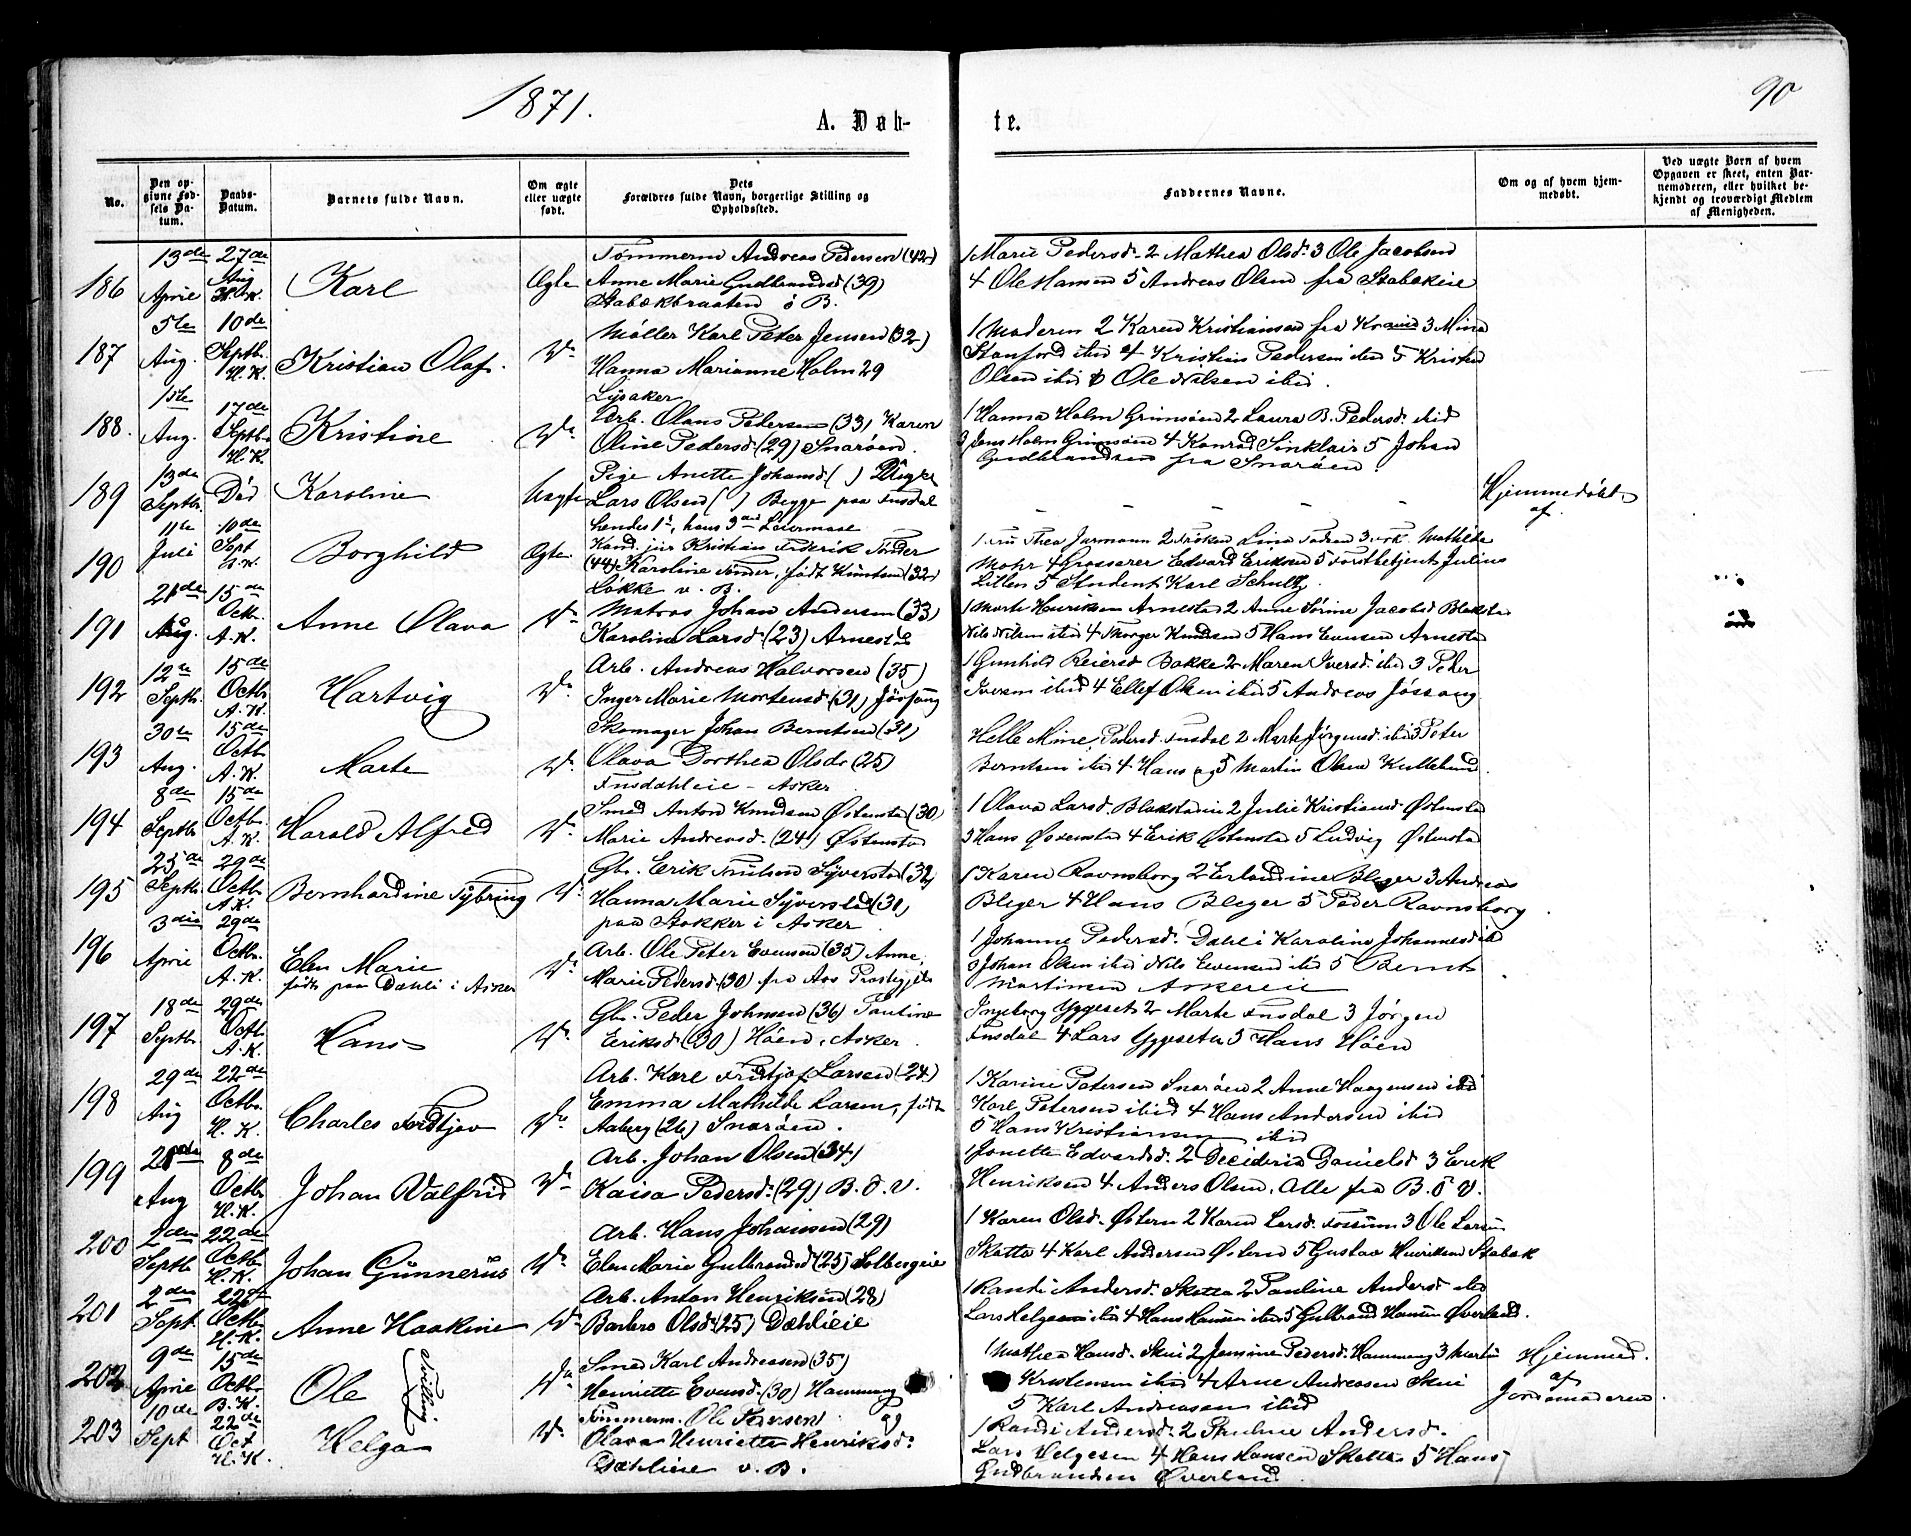 1871.
A. Døb-
te.
90
No.
Den op-
givne Fød-
sels Da-
tum.
Daabs-
Datum.
Barnets fulde Navn.
Om ægte
eller uægte
født.
Dets
Forældres fulde Navn, borgerlige Stilling og
Opholdssted.
Faddernes Navne.
Om og af hvem hjem-
medøbt.
Ved uægte Børn af hvem
Opgaven er skeet, enten Bar-
nemoderen, eller hvilket be-
kjendt og troværdigt Medlem
af Menigheden.
186
13de
April
27de
Aug
Karl
Ægte
Tømmerm Andreas Pedersen (42)
Anne Marie Gudbrandsd (39)
Stabækbraaten ø B.
1 Marie Pedersd. 2 Mathea Olsd. 3 Ole Jacobsen
4 Ole Hansen 5 Andreas Olsen fra Stabækeie
187
5te
Aug.
10de
Septbr.
H. K.
Kristian Olaf.
Do
Møller Karl Peter Jensen (32)
Hanna Marianne Holm 29
Lysaker
1 Moderen 2 Karen Kristiansen fra 3 Mina
Stanford ibid 4 Kristian Pedersen ibid 5 Kristen
Olsen ibid 6 Ole Nilsen ibid.
188.
1ste
Aug.
17de
Septbr.
H. K.
Kristine
Do
Arb. Olaus Pedersen (33) Karen
Oline Pedersd. (29) Snarøen.
1 Hanna Holm Grimsøen 2 Laura B. Pedersd. ibid
3 Jens Holm Grimsøen 4 Konrad Sinklair 5 Johan
Gudbrandsen fra Snarøen.
189
13de
Septbr.
Død
Karoline
Uægte
Pige Anette Johansd ( )
Lars Olsen ( ) Begge paa Fusdal
hendes 1ste, hans 3die Leiermaal
Hjemmedøbt
af
190
11te
Juli
10de
Sept
Borghild
Ægte
Kand. jur Kristian Frederik Tønder
(44) Karoline Tønder, født Knutsen (32)
Løkke v. B.
1 Fru Thea Jurmann 2 Frøken Lina 3 Frk. Mathilde
Mohr 4 Grosserer Edvard Eriksen 5 Forstbetjent Julius
5 Student Karl Schultz
191
21de
Aug.
15de
Octbr.
A. K.
Anne Olava
Do
Matros Johan Andersen (33)
Karoline Larsd. (23) Arnestad
1 Marte Henriksen Arnestad 2 Anne Sørine Jacobsd Blakstad
Nils Nilsen ibid 4 Knudsen 5 Hans Evensen Arnestad
192
12te
Septbr.
15de
Octbr.
A. K.
Hartvig
Do
Arb. Andreas Halvorsen (35)
Inger Marie Mortensd. (31)
1 Gunhild Reiersd Bakke 2 Maren Iversd. ibid 3 Peder
Iversen ibid 4 Ellef Olsen ibid 5 Andreas Jøssang
193
30te
Aug.
15de
Octbr.
A. K.
Marte
Do
Skomager Johan Berntsen (31)
Olava Dorthea Olsdr (25)
Fusdahleie - Asker
Helle Mine Pedersd. Fusdal 2 Marte Jørgensd. ibid 3 Peter
Berntsen ibid 4 Hans og 5 Martin Olsen
194
8de
Septbr.
15de
Octbr.
A. K.
Harald Alfred
Do
Smed Anton Knudsen Østensta (30)
Marie Andreasd. (24) Østensta
1 Olava Larsd. Blakstadin 2 Julie Kristiansd. Østensta
3 Hans Østensta 4 Erik Østensta 5 Ludvig Østensta
195
25de
Septbr.
29de
Octbr.
A. K.
Bernhardine Sybring
Do
Gbr. Erik Syverstad (32)
Hanna Marie Syverstad (31)
paa Stokker i Asker
1 Karen Ravnsborg 2 Erlandine Bleger 3 Andreas
Bleger 4 Hans Bleger 5 Peder Ravnsborg
196
3die
April
29de
Octbr.
A. K.
Elen Marie
født paa Dæhli i Asker
Do
Arb. Ole Peter Evensen (35) Anne
Marie Pedersd. (30) fra Aas Præstegjeld
1 Johanne Pedersd. Dæhli Karoline Johannesd ib
3 Johan Olsen ibid Nils Evensen ibid 5 Bernt
Martinsen Askereie
197
18de
Septbr.
29de
Octbr.
A. K.
Hans
Do
Gbr. Peder Johnsen (36) Pauline
Eriksd (30) Høen, Asker.
Ingeborg Yggeset 2 Marte Fusdal 3 Jørgen
Fusdal 4 Lars Yggeseter 5 Hans Høen
198
29de
Aug
22de
Octbr.
H. K.
Charles Fridtjov
Do
Arb. Karl Fridtjof Larsen (24)
Emma Mathilde Larsen, født
Aaberg (26) Snarøen.
1 Karine Petersen Snarøen 2 Anne Haagensen ibid
Karl Petersen ibid 4 Hans Andersen ibid
5 Hans Kristiansen ibid
199
Aug
8de
Octbr.
H. K.
Johan Valfrid
Do
Arb. Johan Olsen (34)
Kaisa Pedersd. (29) B. ö. V.
1 Jonette Edvardsd. 2 Decideria Danielsd 3 Erik
Henriksen 4 Anders Olsen. Alle fra B. ö V.
200
2den
Septb
22de
Octbr.
H. K.
Johan Gunnerius
Do
Arb. Hans Johansen (29)
Elen Marie Gulbrandsd (25) Solbergeie
1 Karen Olsd. Østern 2 Karen Larsd. Fossum 3 Ole Larsen
Skatta 4 Karl Andersen Østern 5 Gustav Henriksen Stabæk
201
2den
Sept
22de
Octbr.
H. K.
Anne Haakine
Do
Arb. Anton Henriksen (28)
Barbro Olsd. (25) Dæhlieie
1 Randi Andersd. Skatta 2 Pauline Andersd ibid
Lars Helgesen ibid 4 Hans Hansen ibid 5 Gulbrand Hansen Øverland.
202
9de
April
15de
Octbr.
B. K.
Ole
Tvilling
Do
Smed Karl Andreasen (35)
Henriette Evensd. (30) Hammang
1 Mathea Hansd. Skui 2 Jensine Pedersd. Hammang 3 Martin
Kristensen ibid 4 Arne Andreassen Skui
5 Karl Andreasen ibid
Hjemmed.
af
Jordemoderen.
203
10de
Sept
22de
Oct
H. K.
Helga
Do
Tømmerm. Ole Pedersen og
Olava Henriette Henriksd.
Dæhlieie v. B.
1 Randi Andersd. 2 Pauline Andersd.
Lars Helgesen 4 Hans Hansen Skatta 5 Hans
Gudbrandsen Øverland